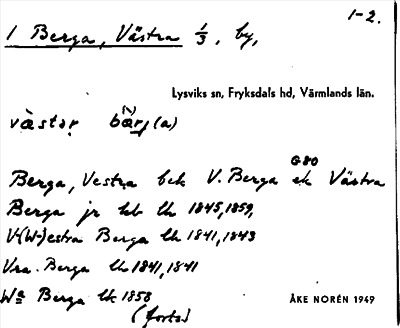 1-2.
1 Berga, Västra 1/3, by,
Lysviks sn, Fryksdals hd, Värmlands län.
västər bärj(a)
G80
Berga, Vestra bek V. Berga ek Västra
Berga jr hb lk 1845, 1859,
V-(W-)estra Berga lk 1841, 1843
Vra. Berga lk 1841, 1841
Wa Berga lk 1858
(forts)
ÅKE NORÉN 1949